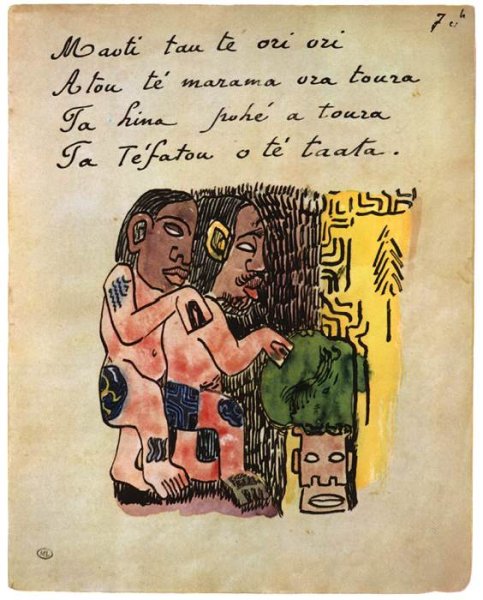 7
Maoti tau te ori ori
Atou té marama ora toura
Ta hina pohé a toura
Ta Téfatou o té taata.